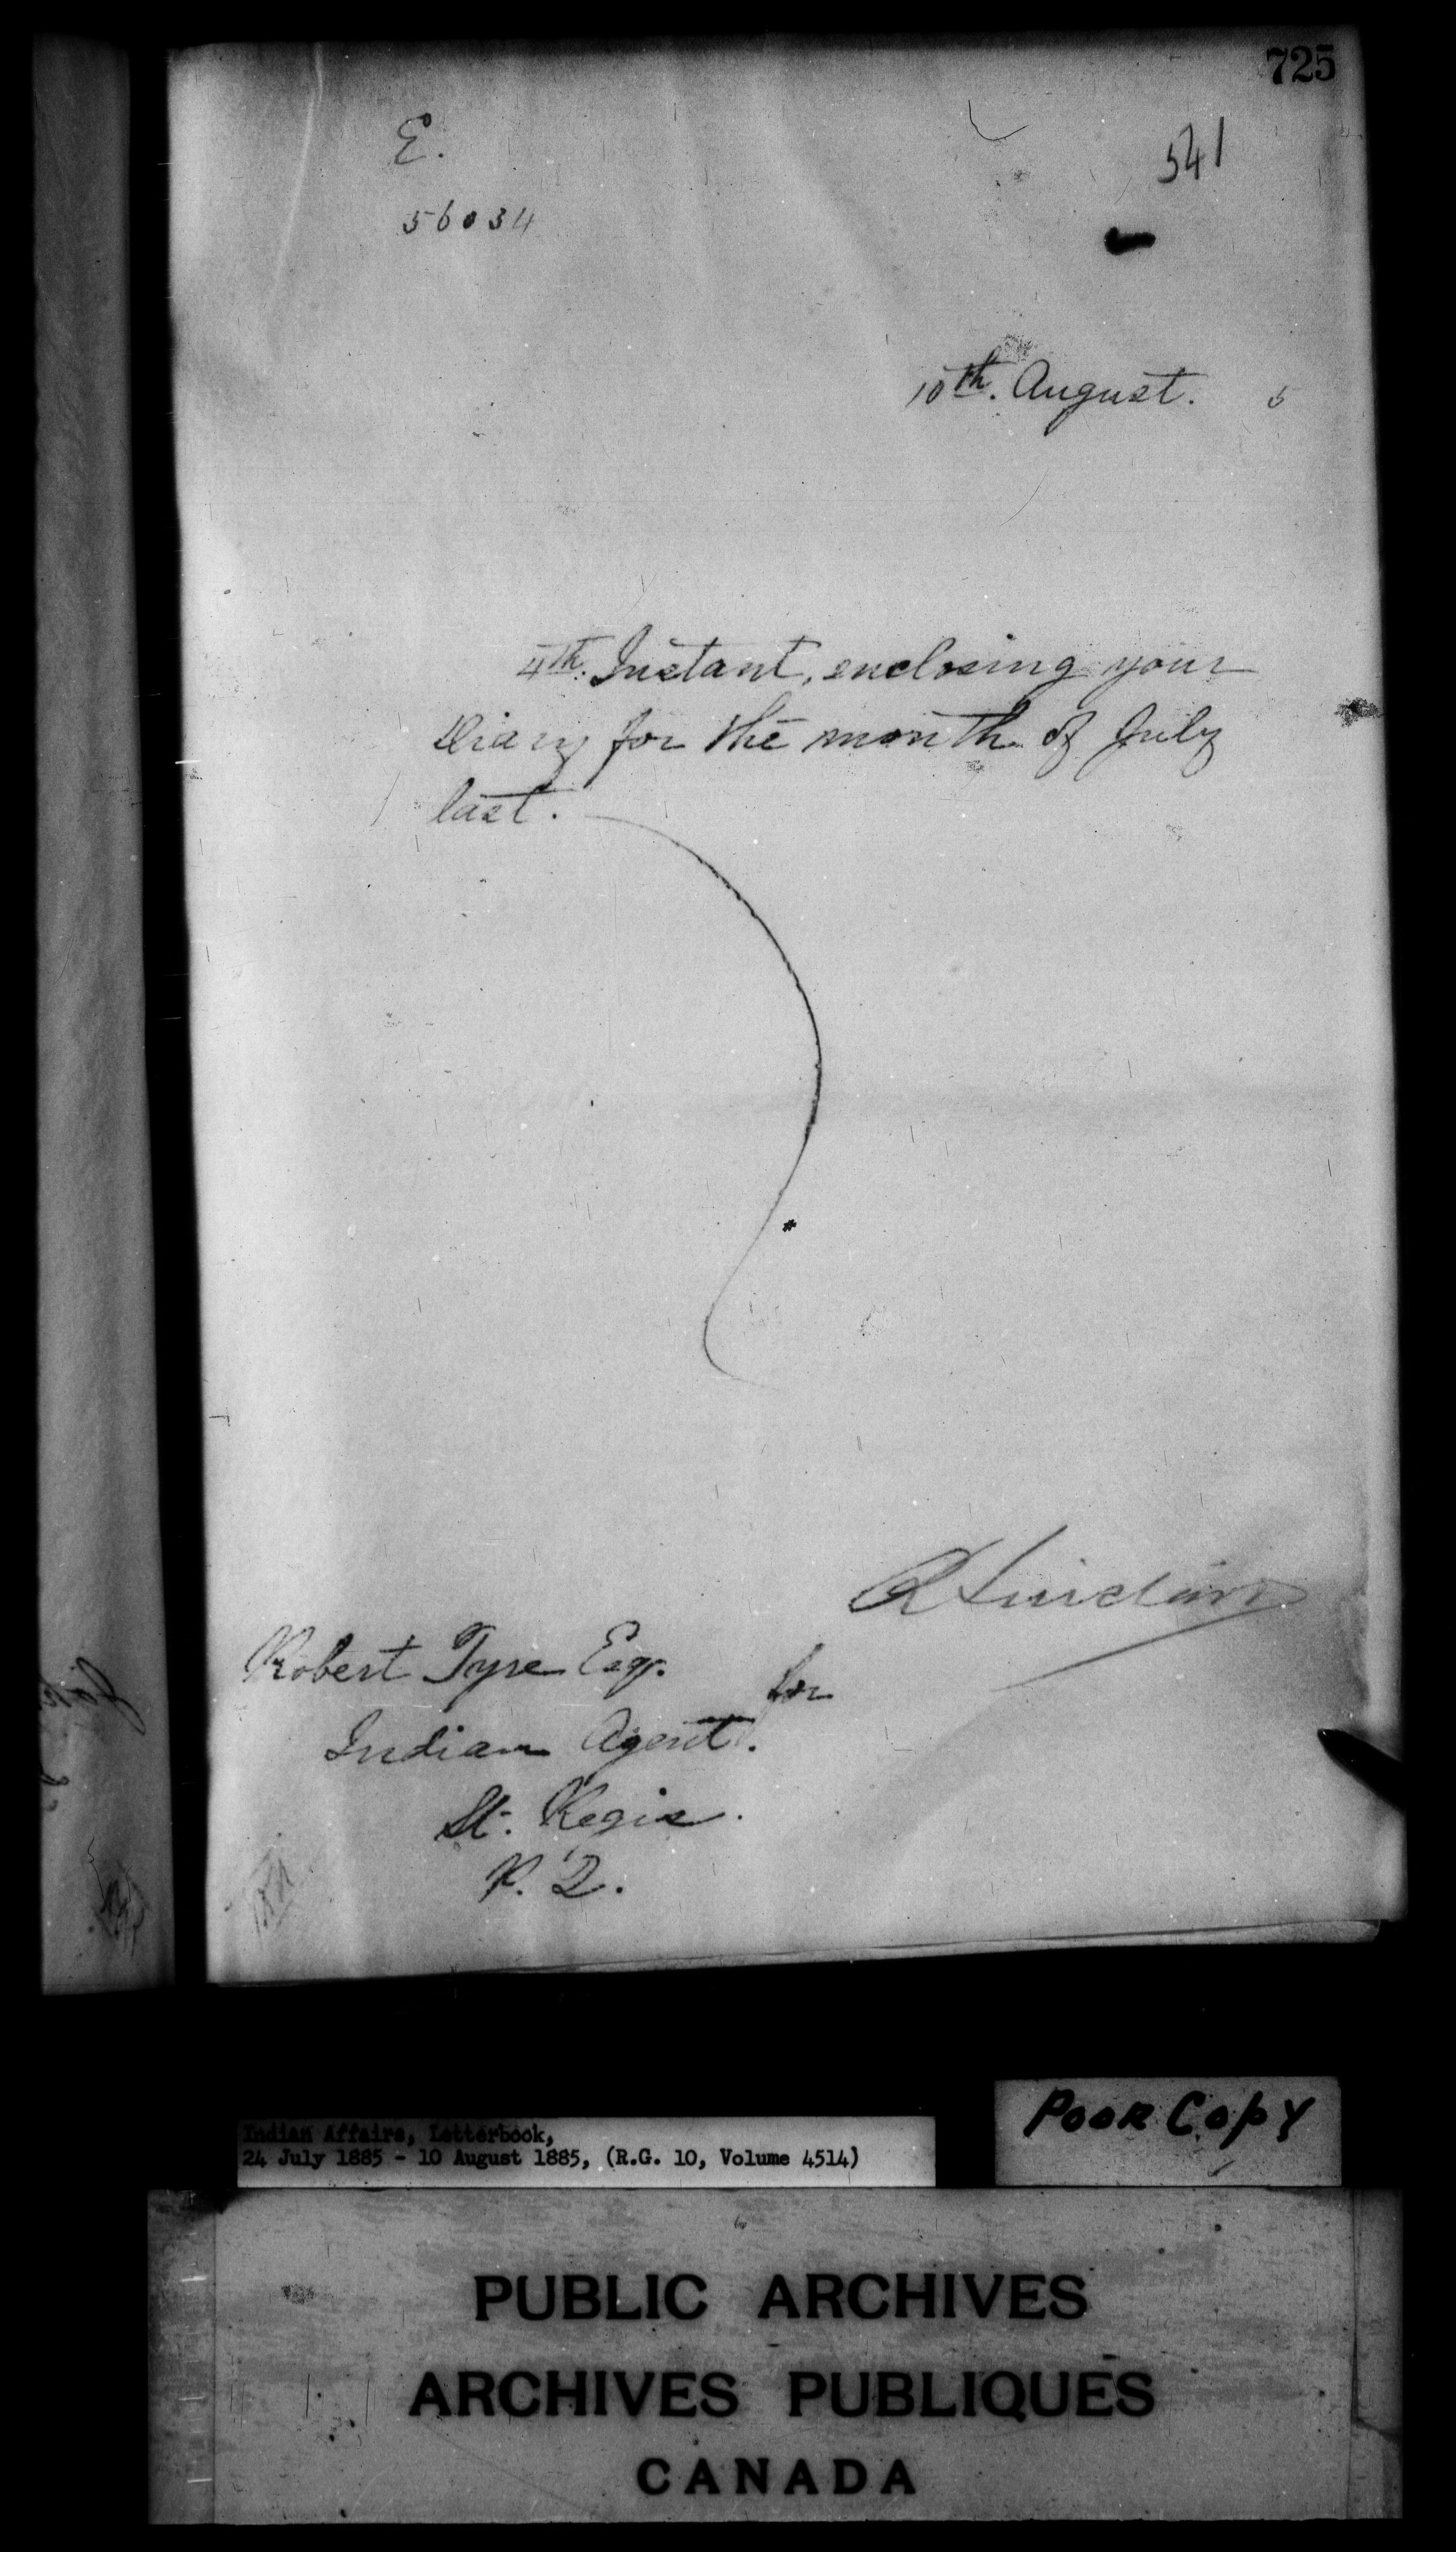 725
E.
541
56034
10th. August. 5
4th. Instant, enclosing your
Diary for the month of July
last.
R Sinclair
Robert Tyre Esqr.
for
Indian Agent.
St. Regis.
P.Q.
Indian Affairs, Letterbook,
24 July 1885 - 10 August 1885, (R.G. 10, Volume 4514)
POOR COPY
PUBLIC ARCHIVES
ARCHIVES PUBLIQUES
CANADA